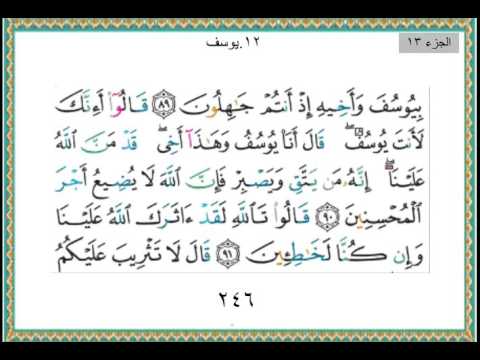 الجزء ١٣
١٢.يوسف
بِيُوسُفَ وَأَخِيهِ إِذْ أَنتُمْ جَٰهِلُونَ ٨٩ قَالُوٓا۟ أَءِنَّكَ
لَأَنتَ يُوسُفُ ۖ قَالَ أَنَا۠ يُوسُفُ وَهَٰذَآ أَخِى ۖ قَدْ مَنَّ ٱللَّهُ
عَلَيْنَآ ۖ إِنَّهُۥ مَن يَتَّقِ وَيَصْبِرْ فَإِنَّ ٱللَّهَ لَا يُضِيعُ أَجْرَ
ٱلْمُحْسِنِينَ ٩٠ قَالُوا۟ تَٱللَّهِ لَقَدْ ءَاثَرَكَ ٱللَّهُ عَلَيْنَا
وَإِن كُنَّا لَخَٰطِـِٔينَ ٩١ قَالَ لَا تَثْرِيبَ عَلَيْكُمُ
٢٤٦